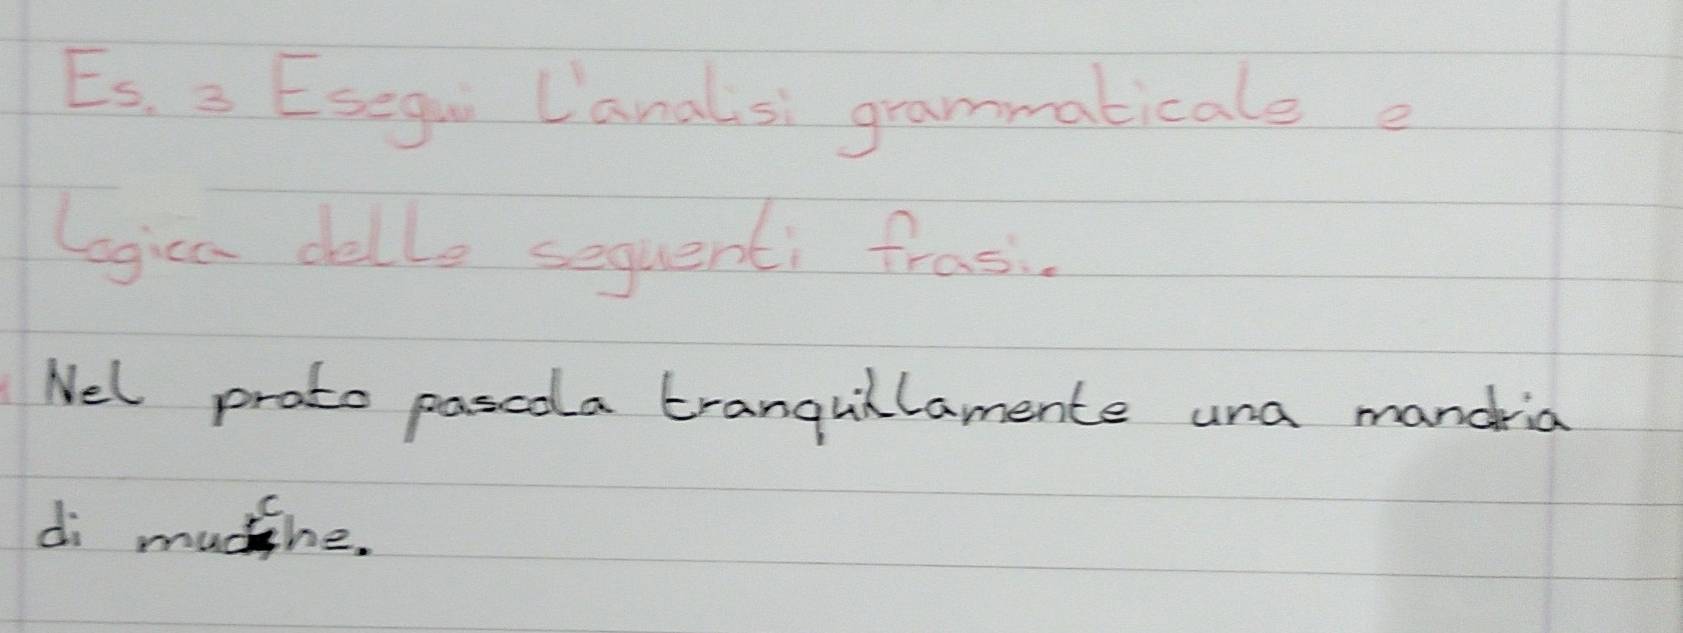 Es. 3 Esegui l'analisi grammaticale e
logica delle seguenti frasi.
Nel prato pascola tranquillamente una mandria
di mucche.